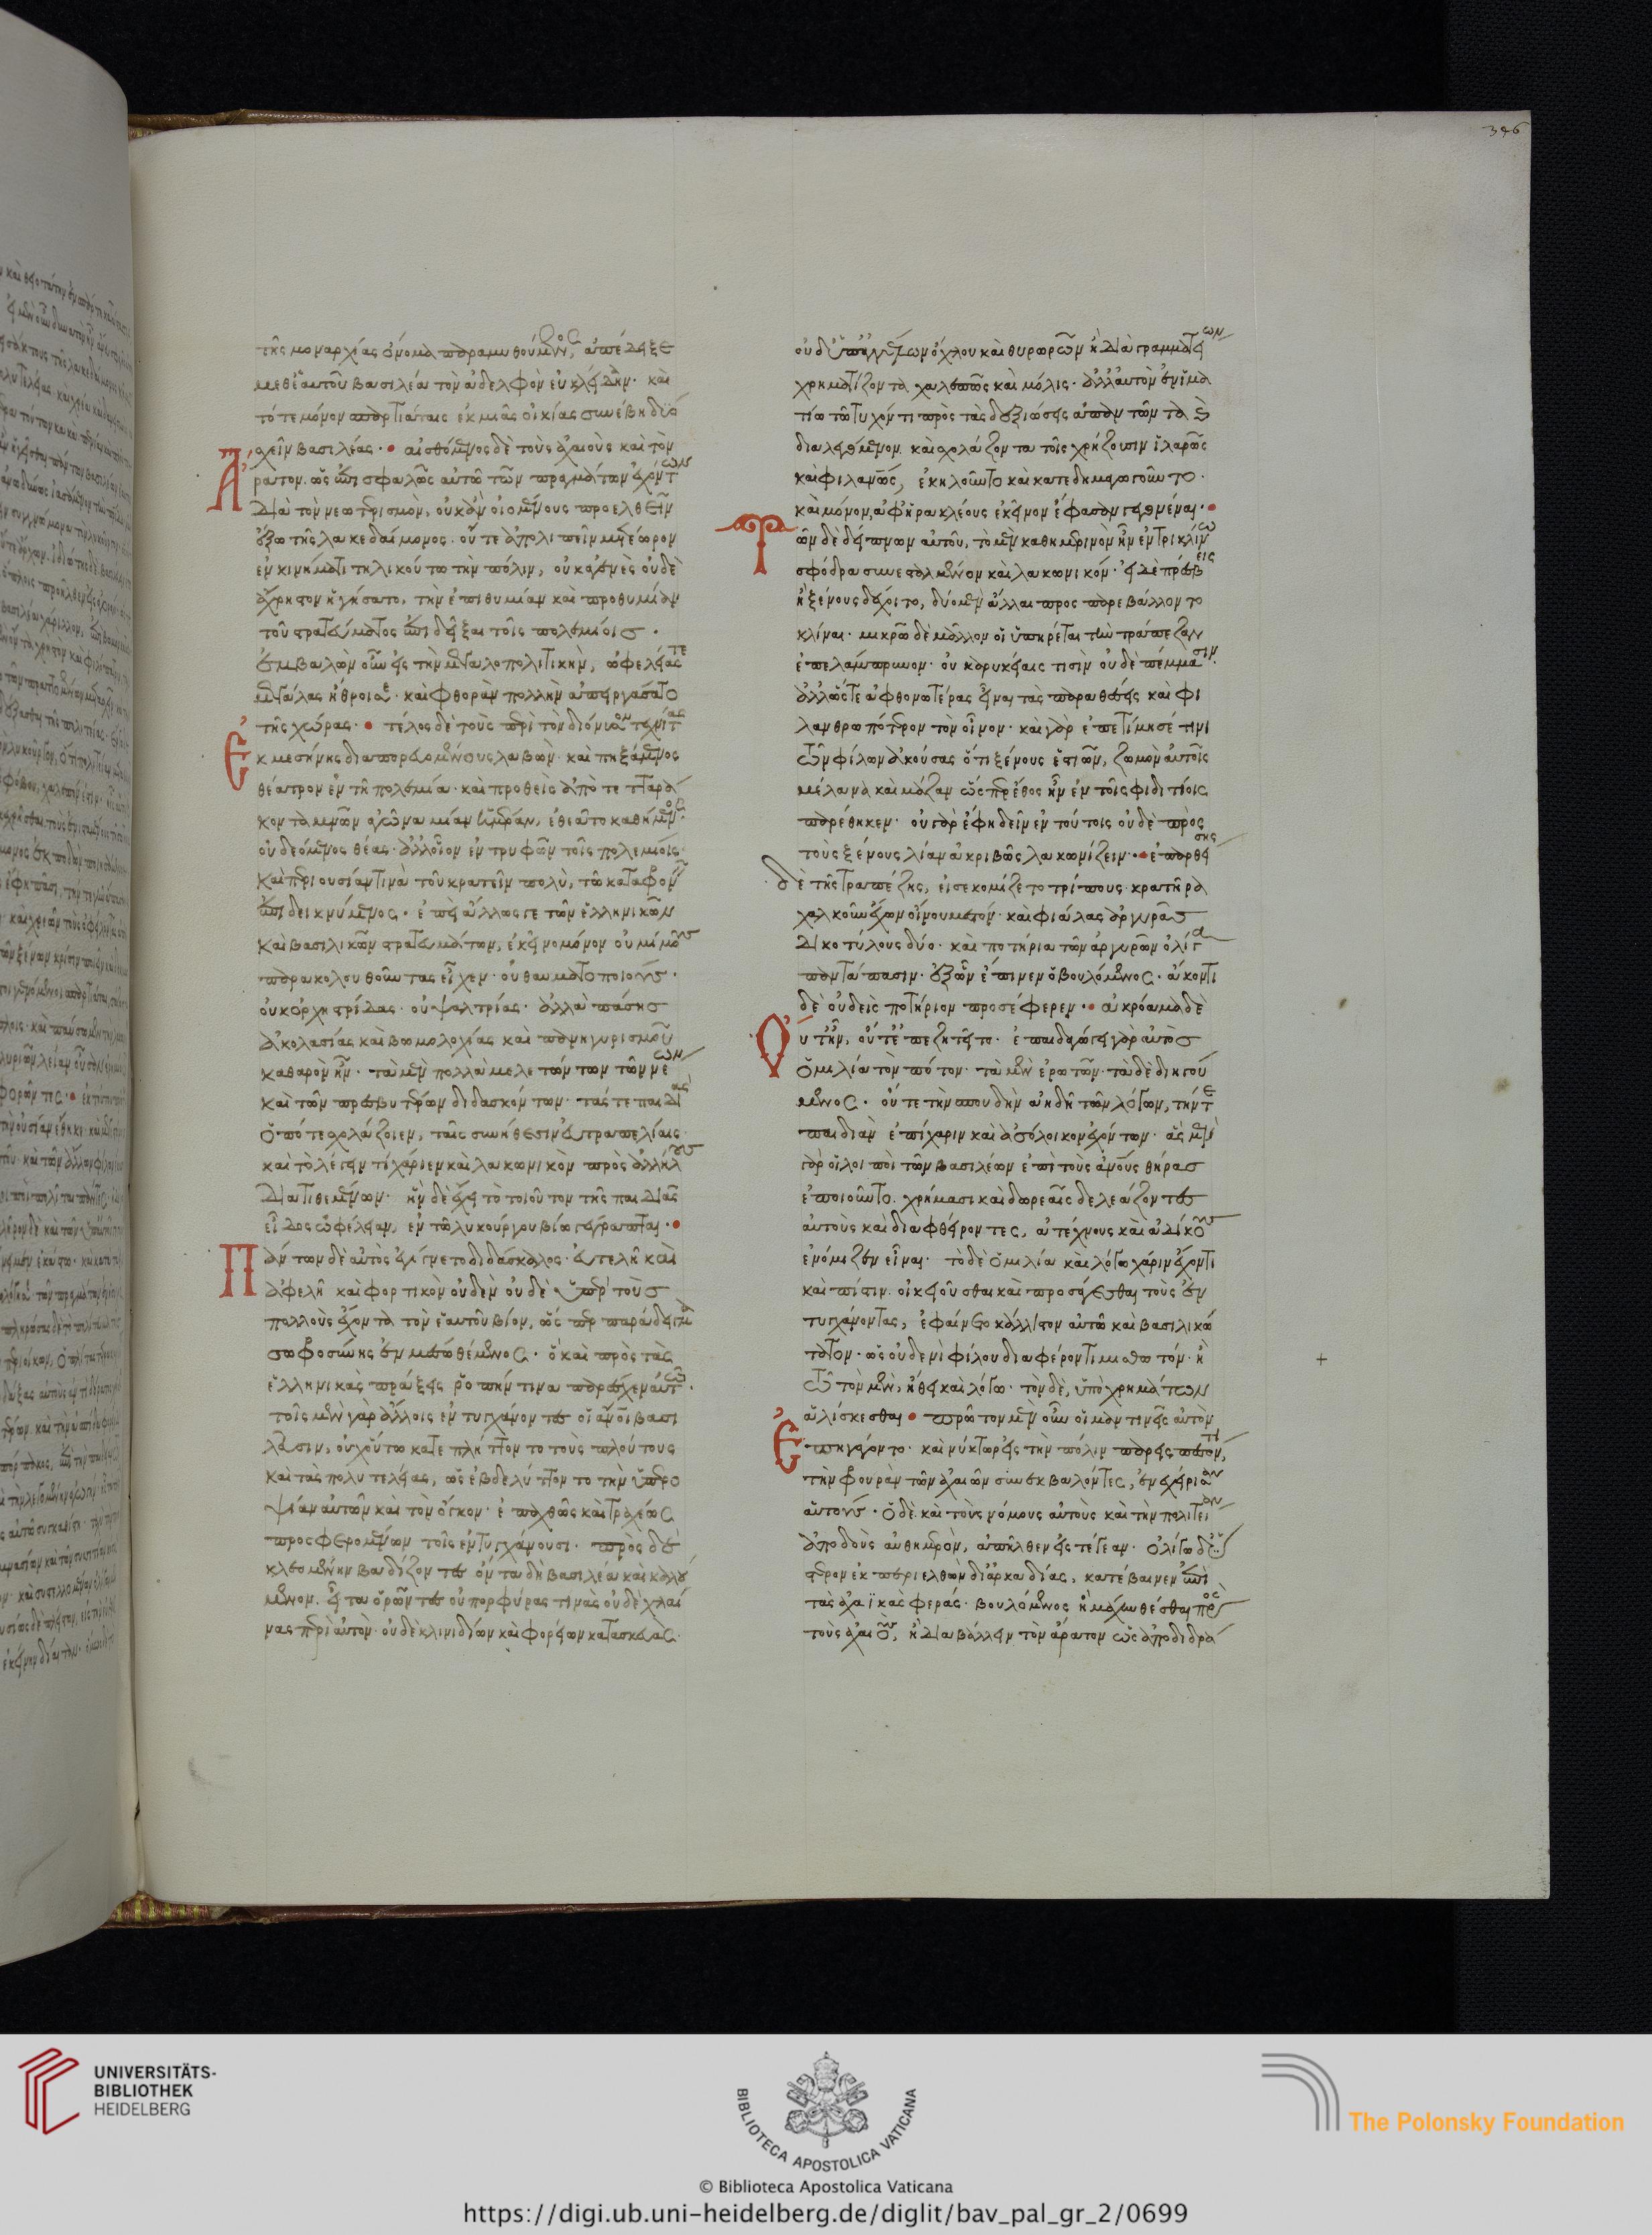 346
τῆς μοναρχίας ὄνομα παραμυθούμενος, ἀπέδειξε
μεθ' ἑαυτοῦ βασιλέα τὸν ἀδελφὸν εὐκλείδαν. καὶ
τότε μόνον σπαρτιάταις ἐκ μιᾶς οἰκίας συνέβη δύο
σχεῖν βασιλέας. αἰσθόμενος δὲ τοὺς ἀχαιοὺς καὶ τὸν
Ἄρατον. ὡς ἐπισφαλῶς αὐτῷ τῶν πραγμάτων ἐχόντων
διὰ τὸν νεωτερισμὸν, οὐκ ἂν οἰομένους προελθεῖν
ἔξω τῆς λακεδαίμονος. οὔτε ἀπολιπεῖν μετέωρον
ἐν κινήματι τηλικούτω τὴν πόλιν, οὐκ ἀγενὲς οὐδὲ
ἄχρηστον ἡγήσατο, τὴν ἐπιθυμίαν καὶ προθυμίαν
τοῦ στρατεύματος ἐπιδεῖξαι τοῖς πολεμίοις.
ἐμβαλὼν οὖν εἰς τὴν μεγαλοπολιτικὴν, ὠφελείας τε
μεγάλας ἤθροισε. καὶ φθορὰν πολλὴν ἀπειργάσατο
τῆς χώρας. τέλος δὲ τοὺς περὶ τὸν διόνυσον τεχνίτας
Ἐκ μεσήνης διαπορευομένους λαβὼν. καὶ πηξάμενος
θέατρον ἐν τῇ πολεμία. καὶ προθεὶς ἀπὸ τετταρά
κοντα μνῶν ἀγῶνα μίαν ἡμέραν, ἐθεᾶτο καθήμενος.
οὐ δεόμενος θέας. ἀλλ' οἷον ἐντρυφῶν τοῖς πολεμίοις.
καὶ περιουσίαν τινὰ τοῦ κρατεῖν πολὺ, τῶ καταφρονεῖν
ἐπιδεικνύμενος. ἐπεὶ ἄλλως γε τῶν ἑλληνικῶν
καὶ βασιλικῶν στρατευμάτων, ἐκεῖνο μόνον οὐ μίμους
παρακολουθοῦντας εἶχεν. οὐ θαυματοποιούς.
οὐκ ὀρχηστρίδας. οὐ ψαλτρίας. ἀλλὰ πάσης
ἀκολασίας καὶ βωμολοχίας καὶ πανηγυρισμοῦ
καθαρὸν ἦν. τὰ μὲν πολλὰ μελετώντων τῶν νέων
καὶ τῶν πρεσβυτέρων διδασκόντων. τὰς τε παιδιὰς
ὁπότε σχολάζοιεν, ταῖς συνήθεσιν εὐτραπελίαις.
καὶ τὸ λέγειν τὶ χάριεν καὶ λακωνικὸν πρὸς ἀλλήλους
διατιθεμένων. ἣν δὲ ἔχει τὸ τοιοῦτον τῆς παιδιᾶς
εἶδος ὠφέλειαν, ἐν τῷ λυκούργου βίω γέγραπται.
Πάντων δὲ αὐτὸς ἐγίγνετο διδάσκαλος. εὐτελῆ καὶ
ἀφελῆ καὶ φορτικὸν οὐδὲν οὐδὲ ὑπὲρ τοὺς
πολλοὺς ἔχοντα τὸν ἑαυτοῦ βίον, ὥσπερ παράδειγμα
σωφροσύνης ἐν μέσω θέμενος. ὃ καὶ πρὸς τὰς
ἑλληνικὰς πράξεις ῥοπήν τινα παρέσχεν αὐτῷ.
τοῖς μὲν γὰρ ἄλλοις ἐντυγχάνοντες οἱ ἄνθρωποι βασι
λεῦσιν, οὐχ οὕτω κατεπλήττοντο τοὺς πλούτους
καὶ τὰς πολυτελείας, ὡς ἐβδελύττοντο τὴν ὑπερο
ψίαν αὐτῶν καὶ τὸν ὄγκον. ἐπαχθῶς καὶ τραχέως
προσφερομένων τοῖς ἐντυγχάνουσι. πρὸς δὲ
κλεομένην βαδίζοντες ὄντα δὴ βασιλέα καὶ καλού
μενον. εἶτα ὁρῶντες οὐ πορφύρας τινὰς οὐδὲ χλαί
νας περὶ αὐτὸν. οὐδὲ κλινιδίων καὶ φορείων κατασκευάς.
οὐδ' ὑπ' ἀγγέλων ὄχλου καὶ θυρωρῶν ἢ διὰ γραμματείων
χρηματίζοντα χαλεπῶς καὶ μόλις. ἀλλ' αὐτὸν ἐν ἱμα
τίω τῷ τυχόντι πρὸς τὰς δεξιώσεις ἀπαντῶντα καὶ
διαλεγόμενον. καὶ σχολάζοντα τοῖς χρήζουσιν ἱλαρῶς
καὶ φιλανθρώπως, ἐκηλοῦντο καὶ κατεδημαγωγοῦντο.
καὶ μόνον, ἀφ' ἡρακλέους ἐκεῖνον ἔφασαν γεγονέναι.
Τῶν δὲ δείπνων αὐτοῦ, τὸ μὲν καθημερινὸν ἦν ἐν τρικλίνω
σφόδρα συνεσταλμένον καὶ λακωνικόν. εἰ δὲ πρέσβεις
ἢ ξένους δέχοιτο, δύο μὲν ἄλλαι προσπαρεβάλλοντο
κλίναι. μικρῶ δὲ μᾶλλον οἱ ὑπηρέται τὴν τράπεζαν
ἐπελάμπρυνον. οὐ καρυκείαις τισὶν οὐδὲ πέμμασιν.
ἀλλ' ὥστε ἀφθονωτέρας εἶναι τὰς παραθέσεις καὶ φι
λανθρωπότερον τὸν οἶνον. καὶ γὰρ ἐπετίμησέ τινι
τῶν φίλων ἀκούσας ὅτι ξένους ἑστιῶν, ζωμὸν αὐτοῖς
μέλανα καὶ μάζαν ὥσπερ ἔθος ἦν ἐν τοῖς φιδιτίοις
παρέθηκεν. οὐ γὰρ ἔφη δεῖν ἐν τούτοις οὐδὲ πρὸς
τοὺς ξένους λίαν ἀκριβῶς λακωνίζειν. ἐπαρθείσης
δὲ τῆς τραπέζης, εἰσεκομίζετο τρίπους. κρατῆρα
χαλκοῦν ἔχων οἴνου μεστόν. καὶ φιάλας ἀργυρᾶς
δικοτύλους δύο. καὶ ποτήρια τῶν ἀργυρῶν ὀλίγα
παντάπασιν. ἐξ ὧν ἔπινεν ὁ βουλόμενος. ἄκοντι
δὲ οὐδεὶς ποτήριον προσέφερεν. ἀκρόαμα δὲ
Οὔτ' ἦν, οὔτ' ἐπεζητεῖτο. ἐπαιδαγώγει γὰρ αὐτὸς
ὁμιλία τὸν πότον. τὰ μὲν ἐρωτῶν. τὰ δὲ διηγού
μενος. οὔτε τὴν σπουδὴν ἀηδῆ τῶν λόγων, τήν τε
παιδιὰν ἐπίχαριν καὶ ἀσόλοικον ἐχόντων. ἃς μὲν
γὰρ οἱ λοιποὶ τῶν βασιλέων ἐπὶ τοὺς ἀνθρώπους θήρας
ἐποιοῦντο. χρήμασι καὶ δωρεαῖς δελεάζοντες
αὐτοὺς καὶ διαφθείροντες, ἀτέχνους καὶ ἀδίκους
ἐνόμιζεν εἶναι. τὸ δὲ ὁμιλία καὶ λόγω χάριν ἔχοντι
καὶ πίστιν. οἰκειοῦσθαι καὶ προσάγεσθαι τοὺς ἐν
τυγχάνοντας, ἐφαίνετο κάλλιστον αὐτῷ καὶ βασιλικώ
τατον. ὡς οὐδενὶ φίλου διαφέροντι μισθωτόν. ἢ
τῷ τὸν μὲν, ἤθει καὶ λόγω. τὸν δὲ, ὑπὸ χρημάτων
ἁλίσκεσθαι πρῶτον μὲν οὖν οἱ μαντινεῖς αὐτὸν
Ἐπηγάγοντο. καὶ νύκτωρ εἰς τὴν πόλιν παρεισπεσόντι,
τὴν φρουρὰν τῶν ἀχαιῶν συνεκβαλόντες, ἐνεχείρισαν
αὑτούς. ὁ δὲ. καὶ τοὺς νόμους αὐτοὺς καὶ τὴν πολιτείαν
ἀποδοὺς αὐθημερὸν, ἀπῆλθεν εἰς τέγεαν. ὀλίγω δὲ ὕ
στερον ἐκπεριελθὼν δι' ἀρκαδίας, κατέβαινεν ἐπὶ
τὰς ἀχαϊκὰς φεράς. βουλόμενος ἢ μάχην θέσθαι πρὸς
τοὺς ἀχαιούς, ἢ διαβάλλειν τὸν ἄρατον ὡς ἀποδιδρά
UNIVERSITÄTS-
BIBLIOTHEK
HEIDELBERG
BIBLIOTECA APOSTOLICA VATICANA
The Polonsky Foundation
© Biblioteca Apostolica Vaticana
https://digi.ub.uni-heidelberg.de/diglit/bav_pal_gr_2/0699